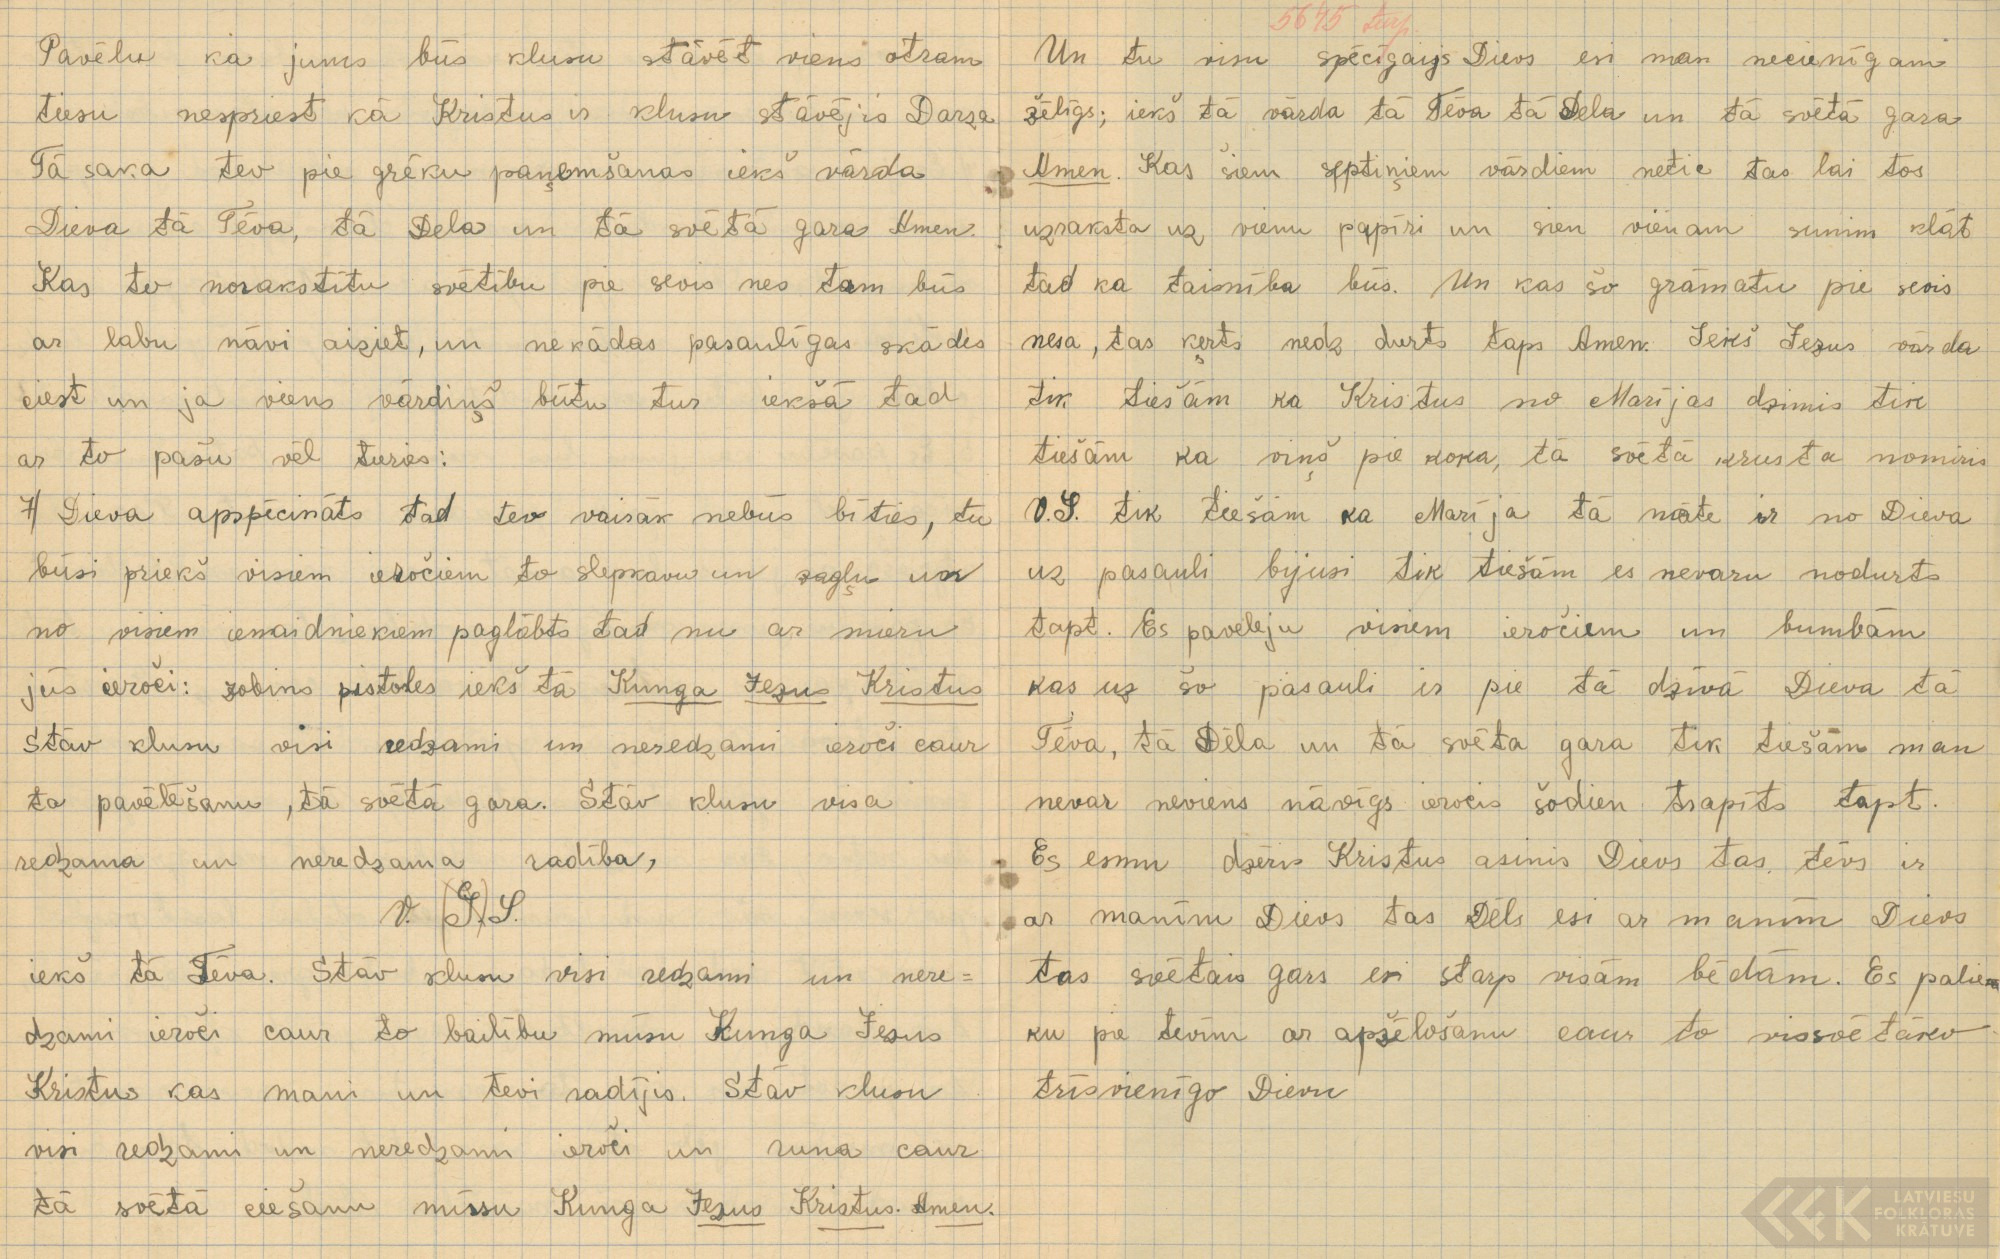 Pavēlu ka jums būs klusu stāvēt viens otram
tiesu nespriest kā Kristus ir klusu stāvējis Darza
Tā saka tev pie grēku paņemšanas iekš vārda
Dieva tā Tēva, tā Dela un tā svētā gara Amen.
Kas to norakstītu svētību pie sevis nes tam būs
ar labu nāvi aiziet, un nekādas pasaulīgas skādes
ciest un ja viens vārdiņš būtu tur iekšā tad
ar to pašu vēl turies:
7) Dieva apspēcināts tad tev vairāk nebūs bīties, tu
būsi priekš visiem ieročiem to slepkavu un zagļu un
no visiem ienaidniekiem paglābts tad nu ar mieru
jūs ieroči: zobins pistoles iekš tā Kunga Jezus Kristus
Stāv klusu visi redzami un neredzami ieroči caur
ta pavēlēšanu, tā svētā gara. Stāv klusu visa
redzama un neredzama radība,
V. (G.) S.
iekš tā Tēva. Stāv klusu visi redzami un nere=
dzami ieroči caur to bailību mūsu Kunga Jezus
Kristus kas mani un tevi radījis. Stāv klusu
visi redzami un neredzami ieroči un runa caur
tā svētā ciešanu mūsu Kunga Jezus Kristus. Amen.
5645 turp.
Un tu visu spēcīgais Dievs esi man necienīgam
žēlīgs; iekš tā vārda tā Tēva tā Dela un tā svētā gara
Amen. Kas šiem septiņiem vārdiem netic tas lai tos
uzraksta uz vienu papīri un sien vienam sunim klāt
tad ka taisnība būs. Un kas šo grāmatu pie sevis
nesa, tas ķerts nedz durts taps Amen. Iekš Jezus vārda
tik tiešām ka Kristus no Marijas dzimis tik
tiešām ka viņš pie koka, tā svētā krusta nomiris
V.S. tik tiešām ka Marija tā māte ir no Dieva
uz pasauli bijusi tik tiešām es nevaru nodurts
tapt. Es paveleju visiem ieročiem un bumbām
kas uz šo pasauli ir pie tā dzīvā Dieva tā
Tēva, tā Dēla un tā svēta gara tik tiešām man
nevar neviens nāvīgs ierocis šodien trapīts tapt.
Es esmu dzēris Kristus asinis Dievs tas tēvs ir
ar manīm Dievs tas Dēls esi ar manīm Dievs
tas svētais gars esi starp visām bēdām. Es palie
ku pie tevīm ar apžēlošanu caur to vissvētāko
trīsvienīgo Dievu
LATVIEŠU
FOLKLORAS
KRĀTUVE